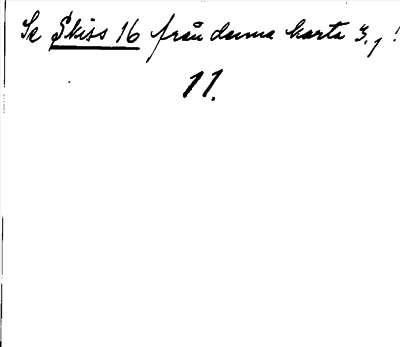 Se Skiss 16 från denna karta 3.1!
11.